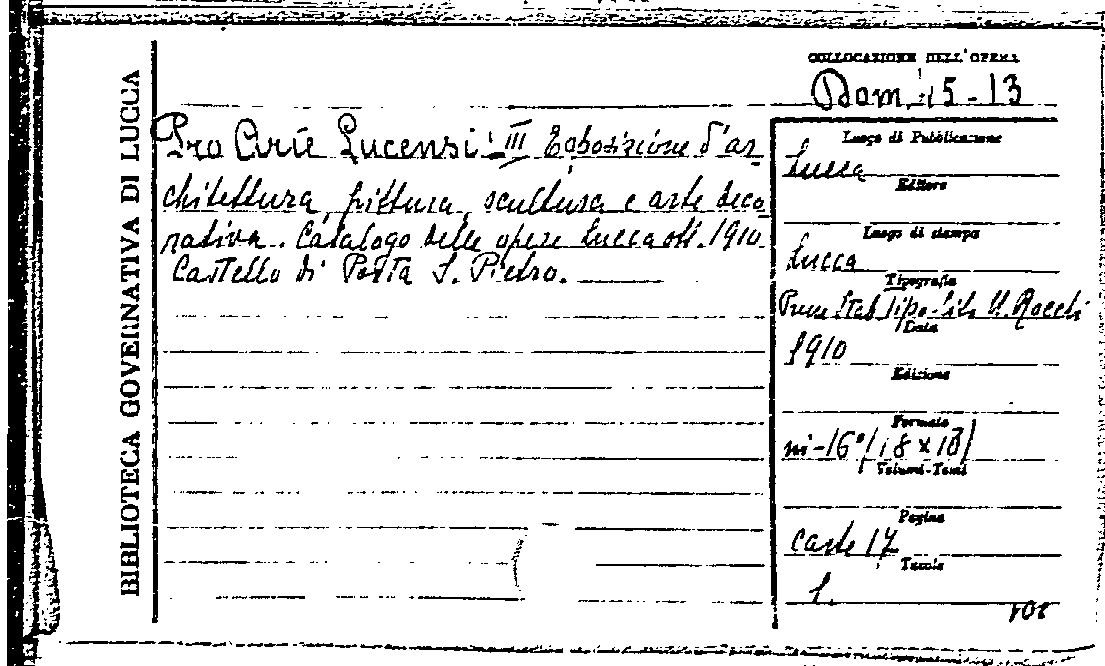 BIBLIOTECA GOVERNATIVA DI LUCCA
COLLOCAZIONE DELL'OPERA
Bom. 15-13
Pro Arte Lucensi: III Esposizione d'ar-
chitettura, pittura, scultura e arte deco
rativa. Catalogo delle opere Lucca ott. 1910
Castello di Porta S. Pietro.
Luogo di Pubblicazione
Lucca
Editore
Luogo di stampa
Lucca
Tipografia
Prem. Stab. Tipo-Lit. U. Rocchi
Data
1910
Edizione
Formato
in-16° (18 x 13)
Volumi-Tomi
Pagine
carte 17
Tavole